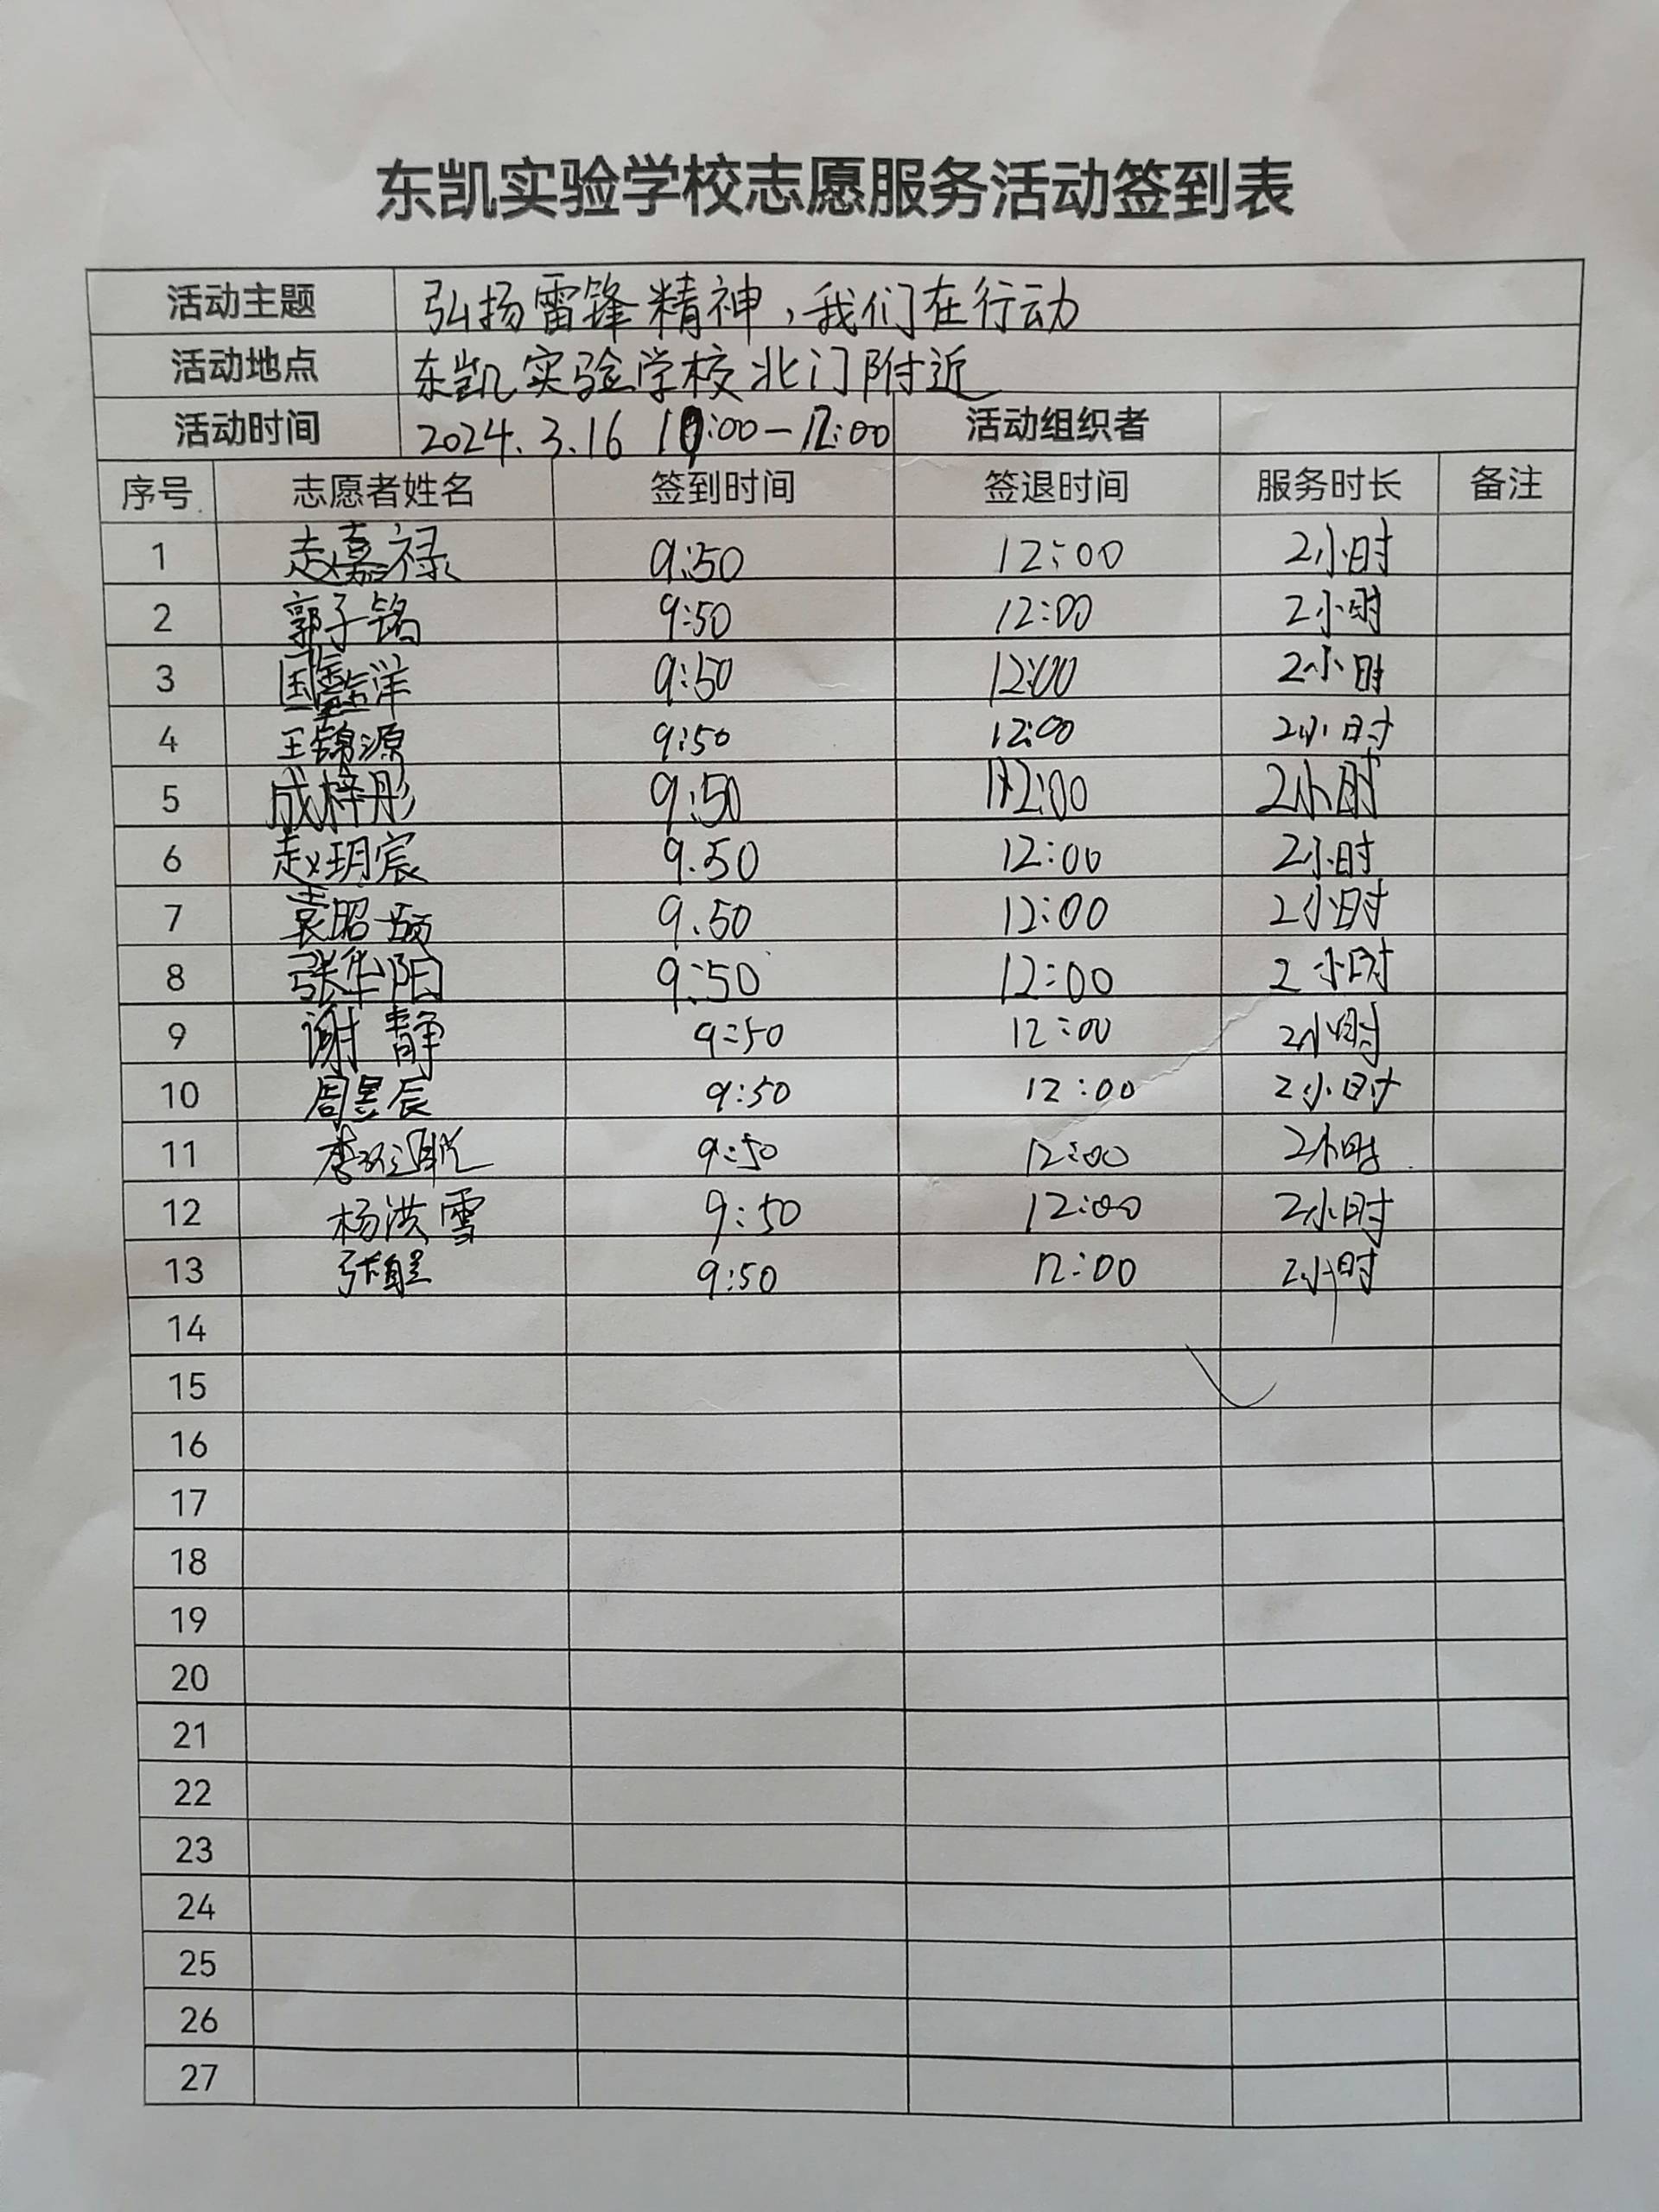 东凯实验学校志愿服务活动签到表
活动主题 弘扬雷锋精神，我们在行动
活动地点 东凯实验学校北门附近
活动时间 2024.3.16 10:00-12:00 活动组织者
序号 志愿者姓名 签到时间 签退时间 服务时长 备注
1 赵嘉禄 9:50 12:00 2小时
2 郭子铭 9:50 12:00 2小时
3 9:50 12:00 2小时
4 王锦源 9:50 12:00 2小时
5 成梓彤 9:50 12:00 2小时
6 赵玥宸 9.50 12:00 2小时
7 袁昭硕 9.50 12:00 2小时
8 张华阳 9:50 12:00 2小时
9 谢静 9:50 12:00 2小时
10 周昱辰 9:50 12:00 2小时
11 9:50 12:00 2小时
12 杨洪雪 9:50 12:00 2小时
13 9:50 12:00 2小时
14
15
16
17
18
19
20
21
22
23
24
25
26
27